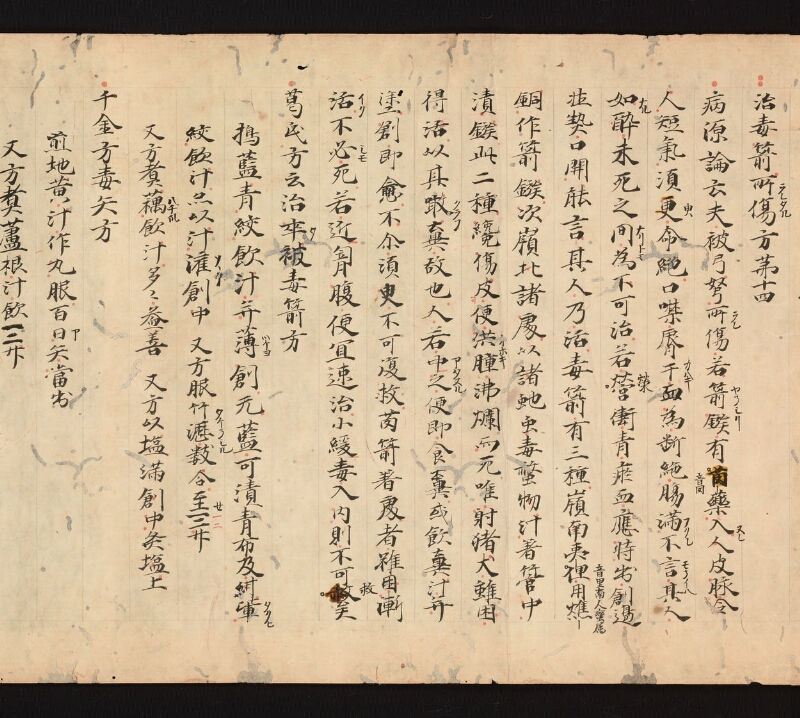 治毒箭所傷方第十四
病源論云夫被弓弩所傷若箭鏃有䓘藥入人皮脉令
人短氣須更命絶口噤脣干血為断絶腸滿不言其人
如醉未死之間為不可治若營衛青瘀血應時出創邊
並熱口開能言其人乃活毒箭有三種嶺南夷俚用燋
銅作箭鏃次嶺北諸處以諸虵虫毒螫物汁著管中
漬鏃此二種纔傷皮便洪腫沸爛而死唯射猪犬雖困
得活以其噉糞故也人若中之便即食糞或飲糞汁并
塗創即愈不尒須更不可復救䓘箭著處者雖困漸
活不必死若近胷腹便宜速治小緩毒入内則不可救矣
葛氏方云治卒被毒箭方
搗藍青絞飲汁并薄創无藍可漬青布及紺𦀌
絞飲汁亦以汁灌創中 又方服竹瀝數合至一二升
又方煮藕飲汁多々益善 又方以塩滿創中灸塩上
千金方毒矢方
煎地黄汁作丸服百日矢當出
又方煮蘆根汁飲一二升